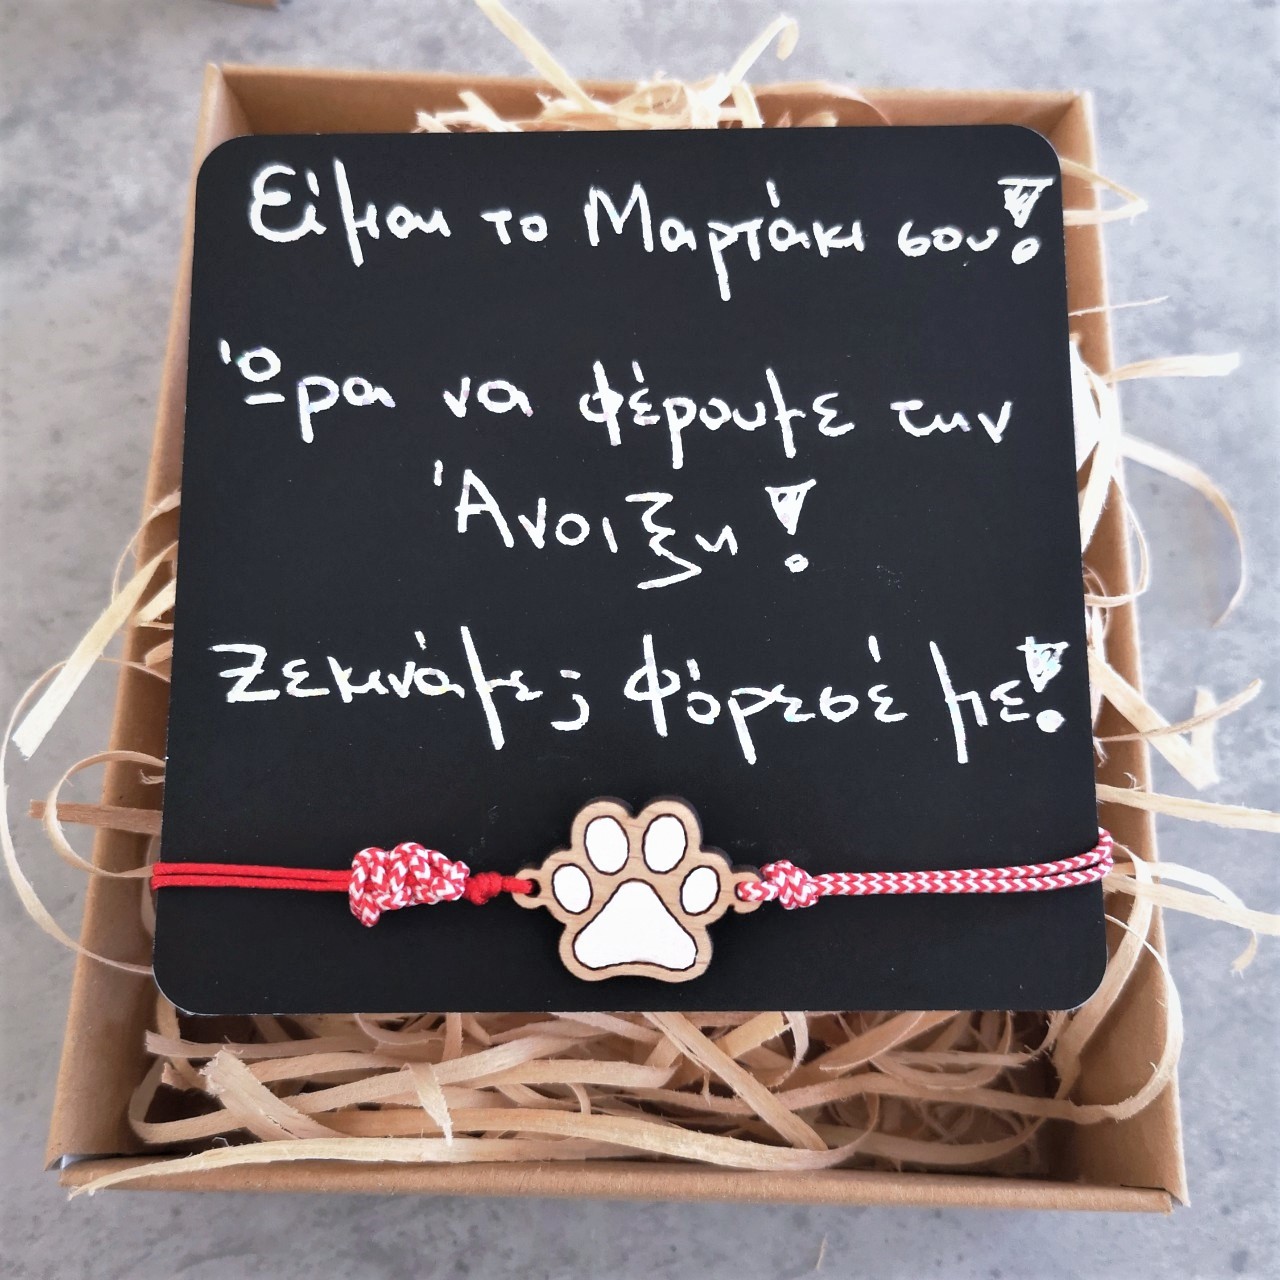 Είμαι το Μαρτάκι σου!
Ώρα να φέρουμε την
Άνοιξη!
Ξεκινάμε; Φόρεσέ με!